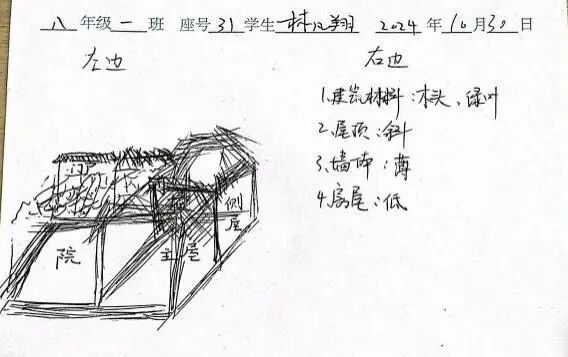 八年级一班 座号31学生林凡翔 2024年10月30日
左边
右边
1.建筑材料:木头、绿叶
2.屋顶:斜
3.墙体:薄
4.房屋:低
门
侧屋
院
主屋